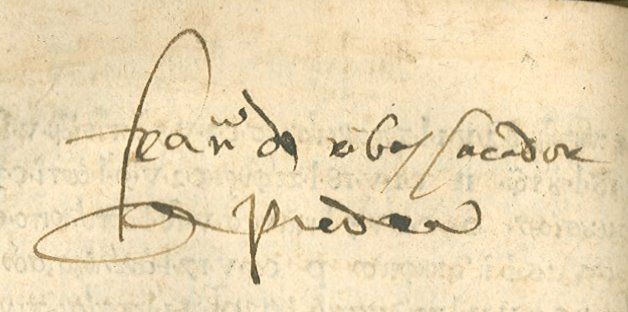 fran^co de ribas sacador
de piedra